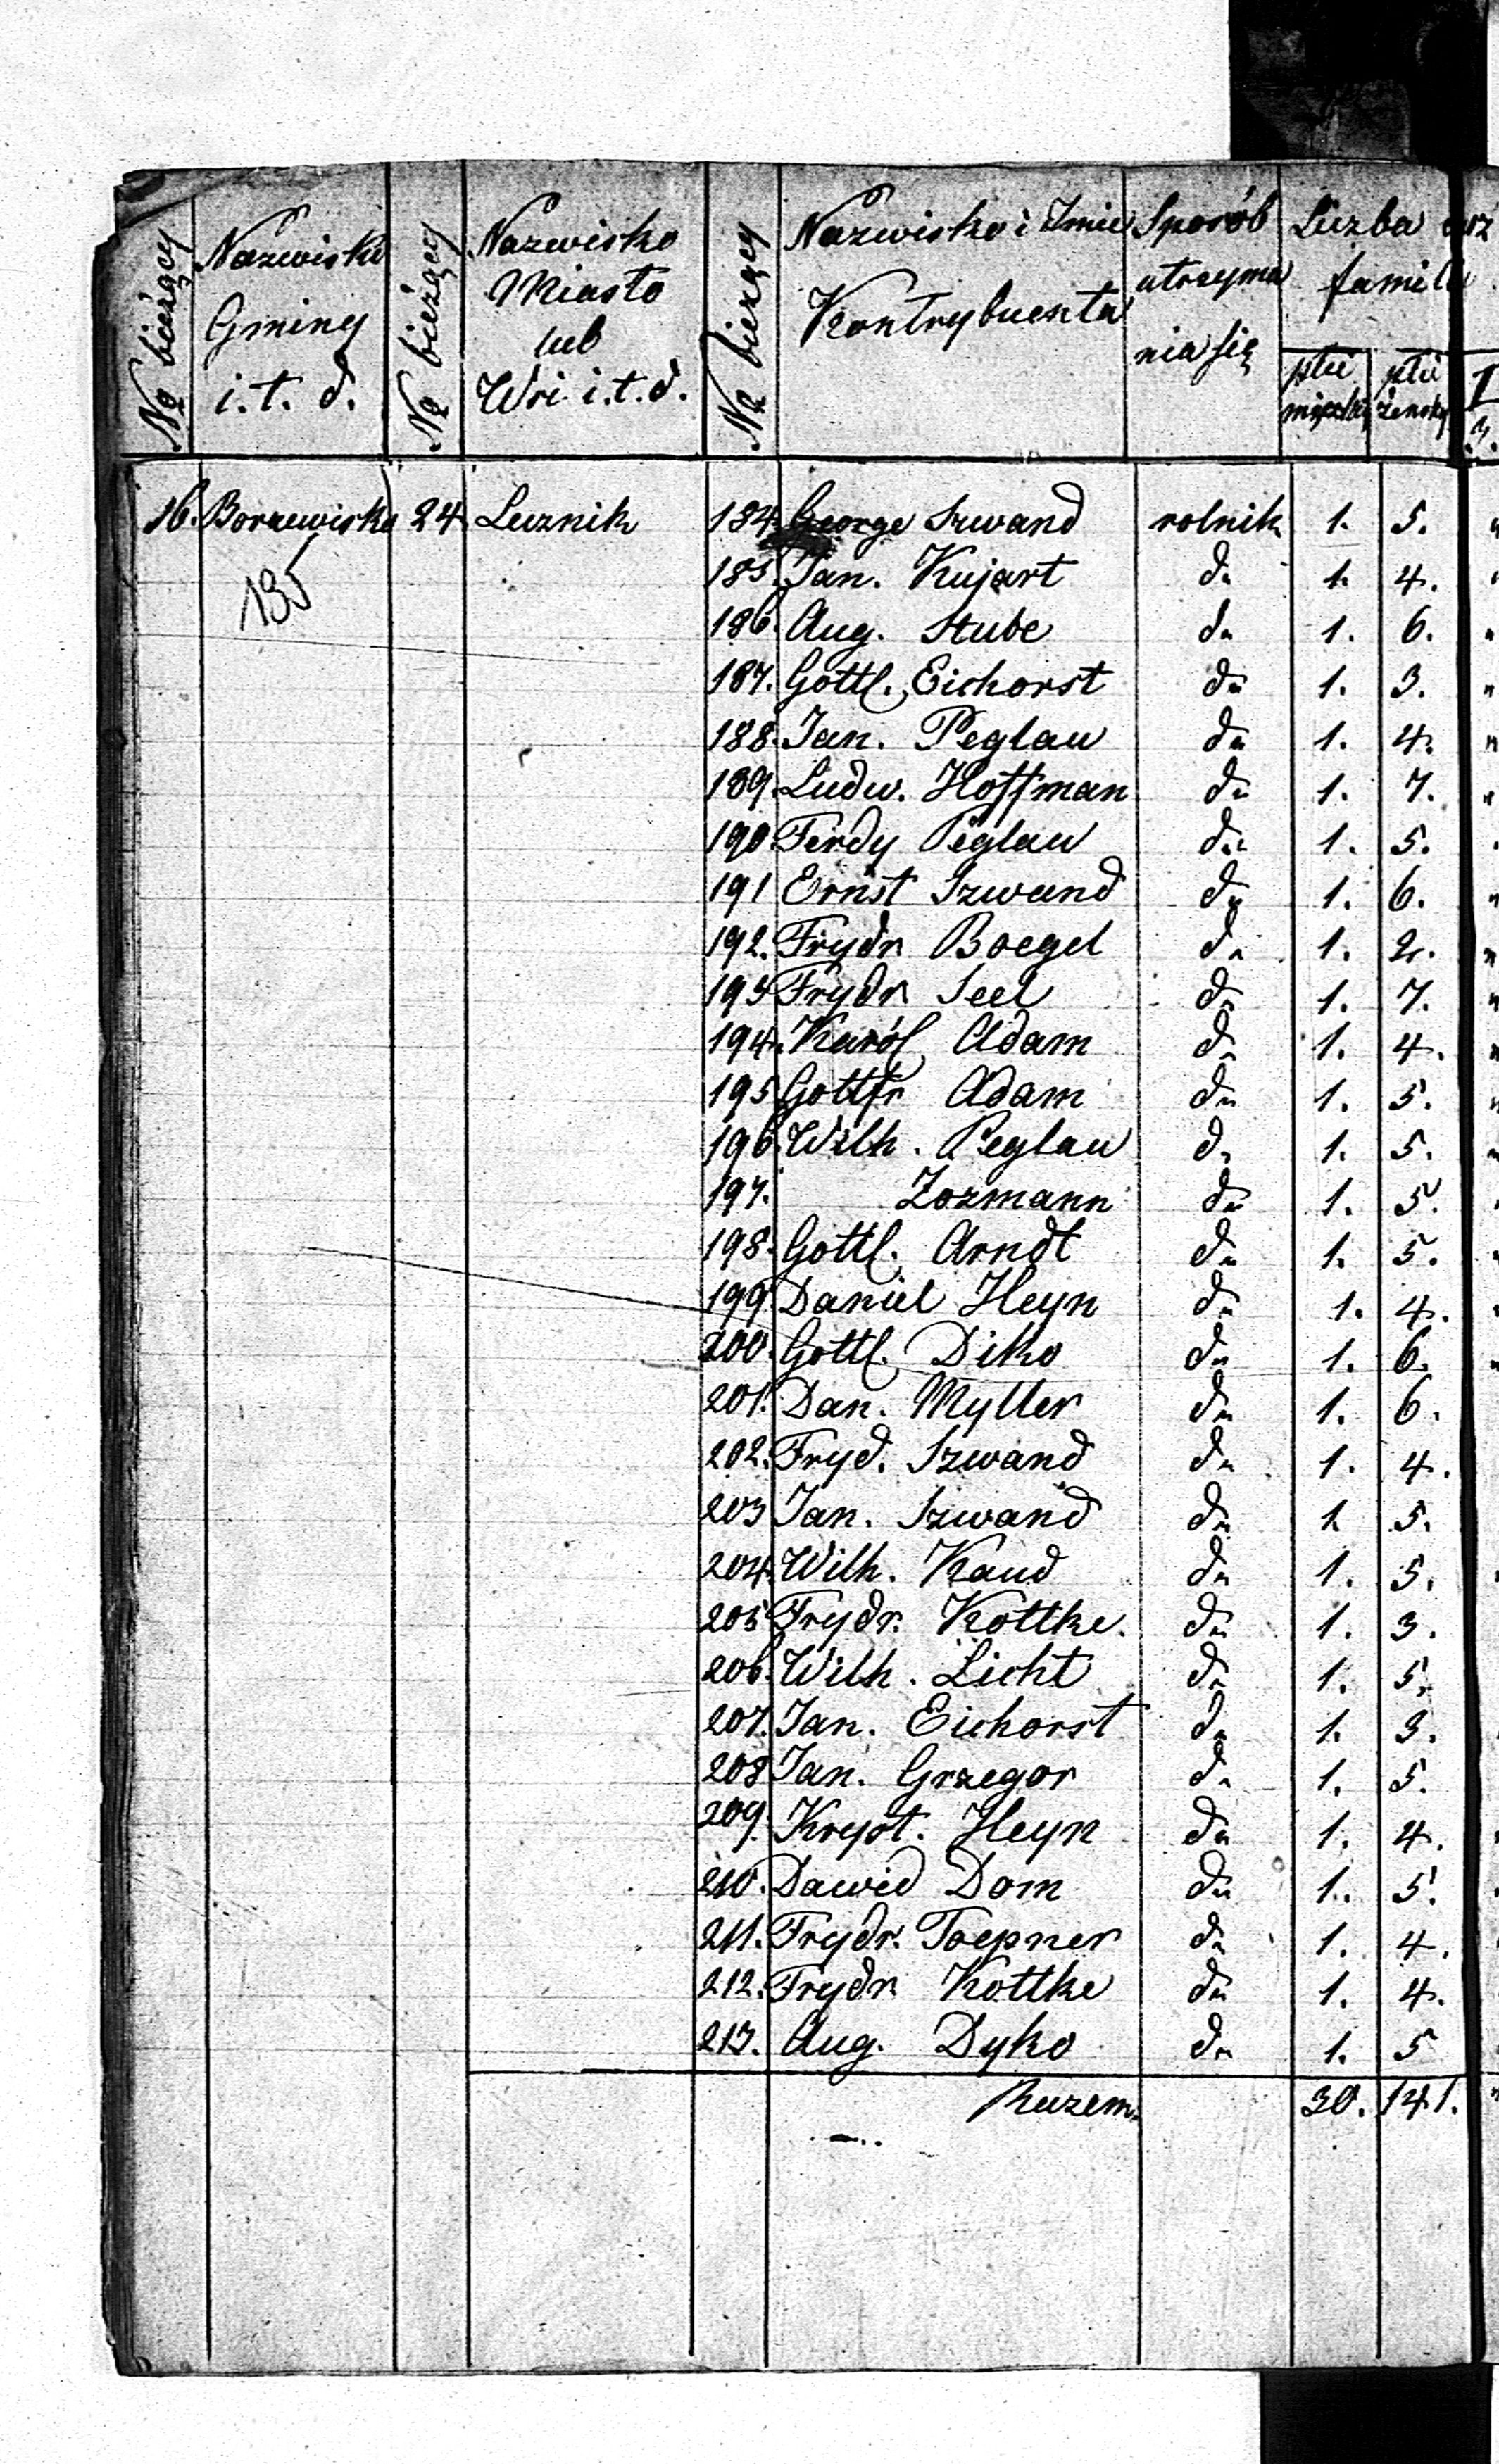 № bieżący
Nazwisko
Gminy
i.t.d.
№ bieżący
Nazwisko
Miasto
lub
Wsi i.t.d.
№ bieżący
Nazwisko i Imie
Kontrybuenta
Sposób
utrzyma
nia się
Liczba
famili
płci
męzkiej
płci
żenskiej
16. Borzewisko 24 Lecznik 184. George Szwand rolnik 1. 5.
135
185. Jan. Kujart do 1. 4.
186. Aug. Stube do 1. 6.
187. Gottl. Eichorst do 1. 3.
188. Jan. Peglau do 1. 4.
189. Ludw. Hoffman do 1. 7.
190. Ferdy Peglau do 1. 5.
191 Ernst Szwand do 1. 6.
192. Frydr Boegel do 1. 2.
193 Frydr Seel do 1. 7.
194. Karól Adam do 1. 4.
195 Gottfr Adam do 1. 5.
196. Wilh. Peglau do 1. 5.
197. Zozmann do 1. 5.
198. Gottl. Arndt do 1. 5.
199. Daniel Heyn do 1. 4.
200. Gottl. Diko do 1. 6.
201. Dan. Myller do 1. 6.
202. Fryd. Szwand do 1. 4.
203 Jan. Szwand do 1. 5.
204. Wilh. Kaud do 1. 5.
205 Frydr. Kottke. do 1. 3.
206. Wilh. Licht do 1. 5.
207. Jan. Eichorst do 1. 3.
208 Jan. Grzegor do 1. 5.
209. Kryst. Heyn do 1. 4.
210. Dawid Dom do 1. 5.
211. Frydr. Toepner do 1. 4.
212. Frydr Kottke do 1. 4.
213. Aug. Dyko do 1. 5
Razem. 30. 141.